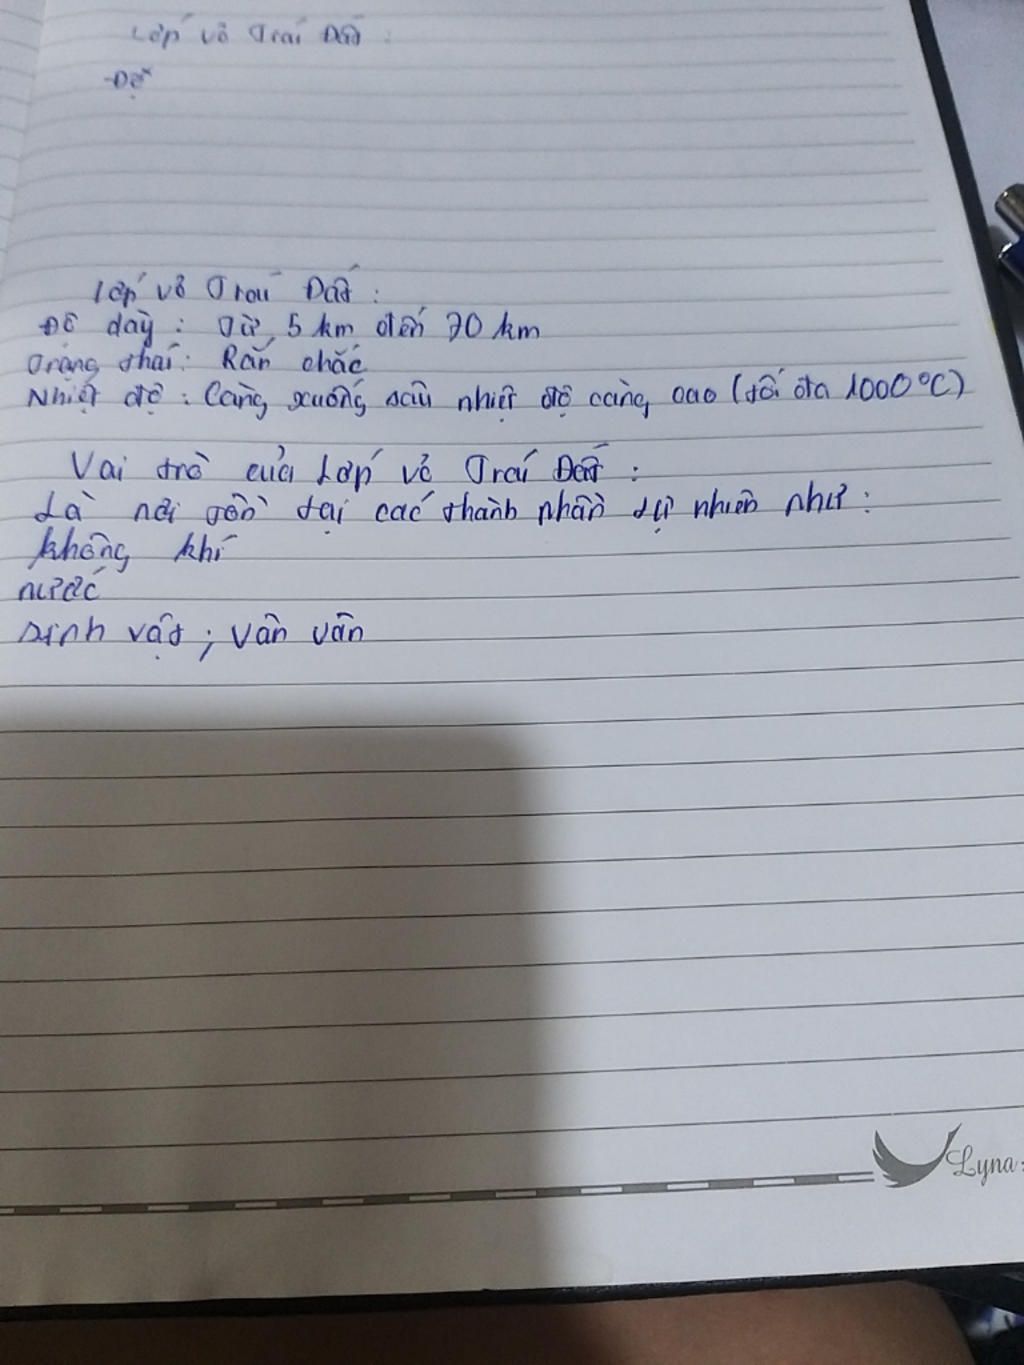 Lớp vỏ Trái Đất :
-Độ
Lớp vỏ Trái Đất :
Độ dày : Từ 5 km đến 70 km
Trạng thái : Rắn chắc
Nhiệt độ : Càng xuống sâu nhiệt độ càng cao (tối đa 1000°C)
Vai trò của Lớp vỏ Trái Đất :
Là nơi tồn tại các thành phần tự nhiên như :
không khí
nước
sinh vật ; vân vân
Lyna